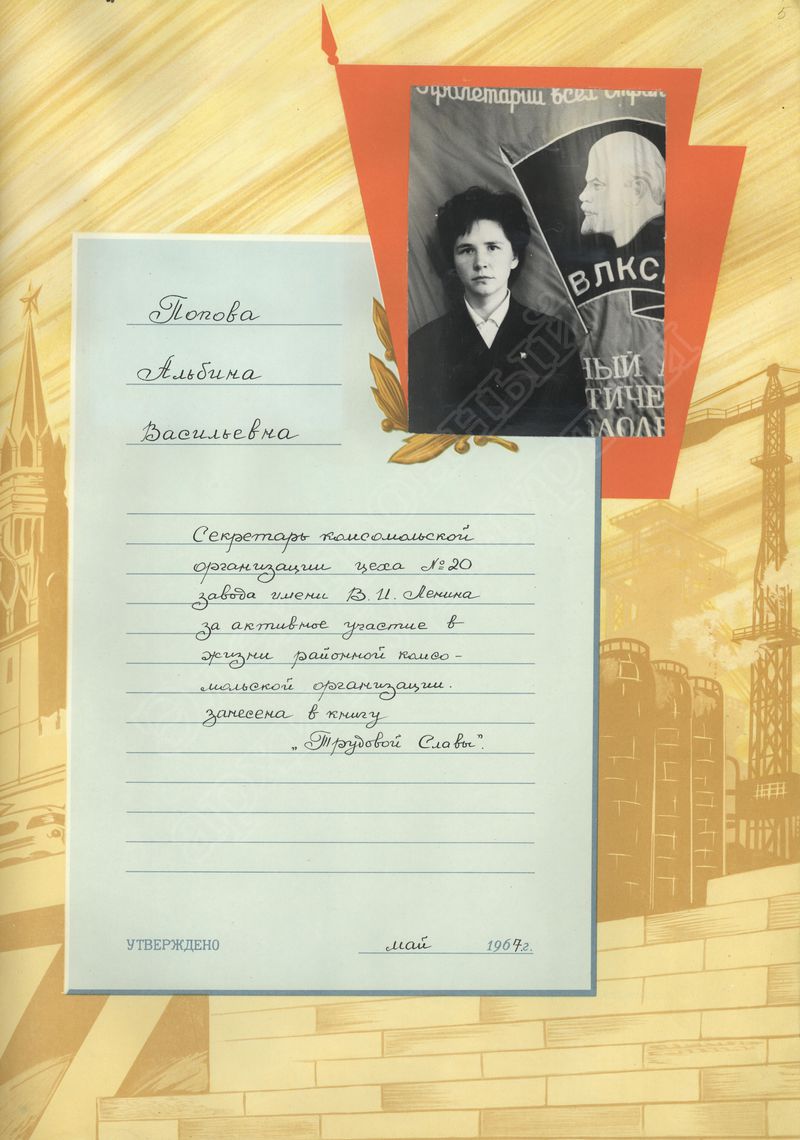 5
Пролетарии всех стран
ВЛКС
НЫЙ
ТИЧЕ
Попова
Альбина
Васильевна
Секретарь комсомольской
организации цеха № 20
завода имени В. И. Ленина
за активное участие в
жизни районной комсо-
мольской организации.
занесена в книгу
„Трудовой Славы".
УТВЕРЖДЕНО май 1967 г.